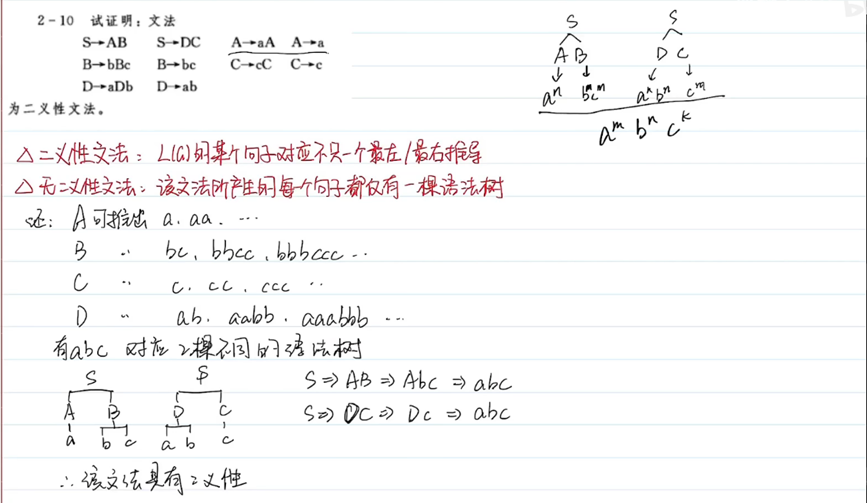 2-10 试证明：文法
S→AB S→DC A→aA A→a
B→bBc B→bc C→cC C→c
D→aDb D→ab
为二义性文法。
S S
A B D C
aⁿ bᵐcᵐ aⁿbⁿ cᵐ
aᵐ bⁿ cᵏ
△ 二义性文法：L(G)的某个句子对应不只一个最左/最右推导
△ 无二义性文法：该文法所产生的每个句子都仅有一棵语法树
证：A可推出 a、aa、…
B 〃 bc、bbcc、bbbccc…
C 〃 c、cc、ccc …
D 〃 ab、aabb、aaabbb …
有abc 对应2棵不同的语法树
S S
A B D C
a b c a b c
S⇒AB⇒Abc⇒abc
S⇒DC⇒Dc⇒abc
∴该文法具有二义性